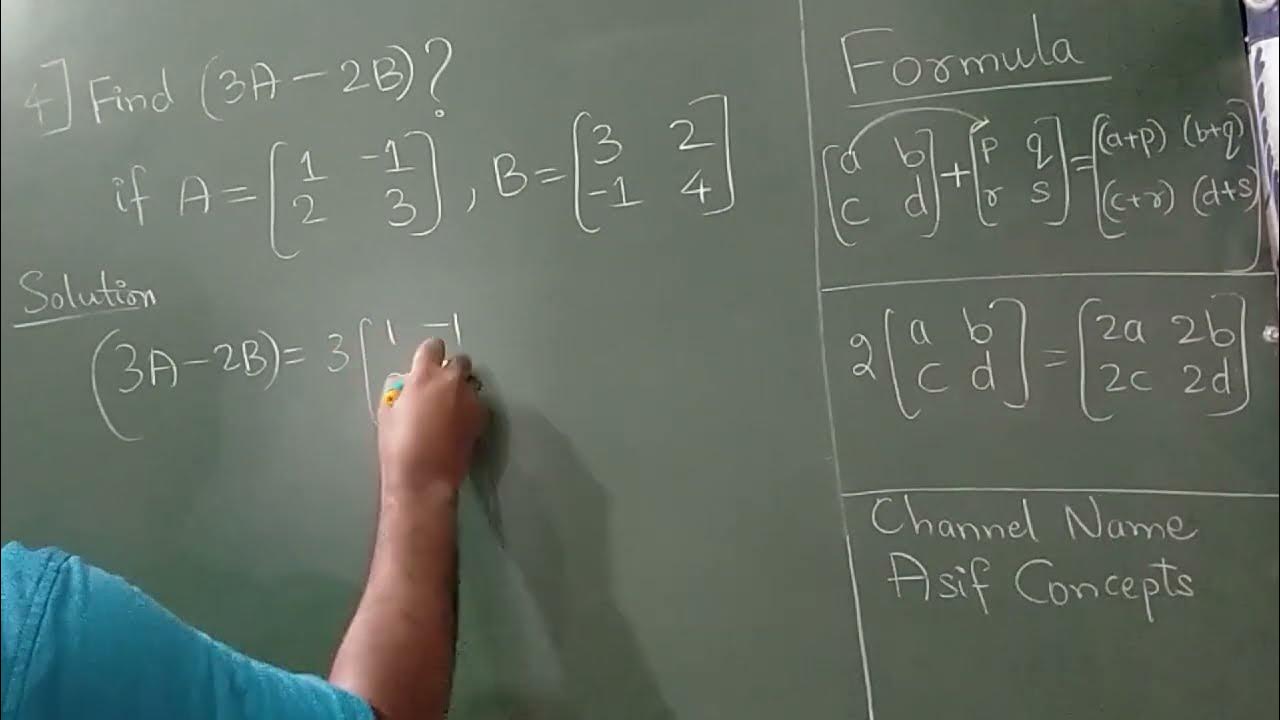 4] Find (3A - 2B)?
if A = [1 -1
2 3], B = [3 2
-1 4]
Solution
(3A - 2B) = 3 [1 -1
Formula
[a b
c d] + [p q
r s] = [(a+p) (b+q)
(c+r) (d+s)]
2 [a b
c d] = [2a 2b
2c 2d]
Channel Name
Asif Concepts